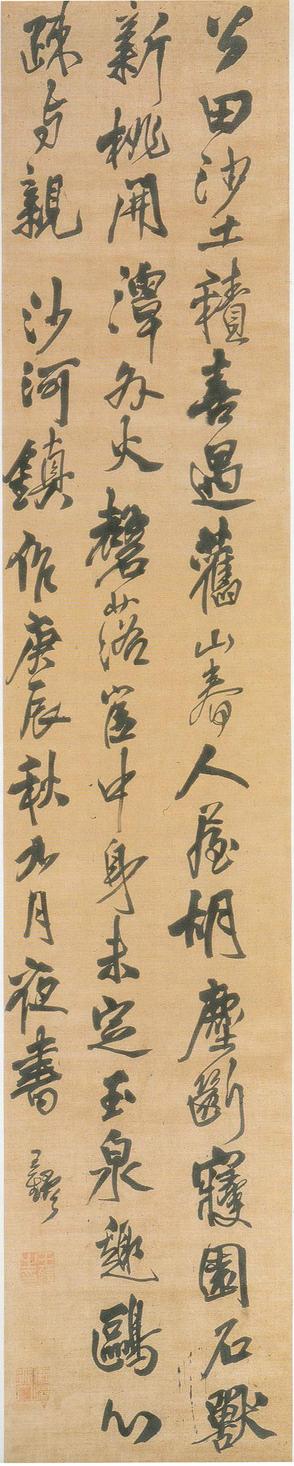 公田沙土積喜遇舊山春人屋胡塵斷寢園石獸
新桃開潭外火磬落崖中身未定玉泉趣鷗心
疎與親 沙河鎮作庚辰秋九月夜書 王鐸